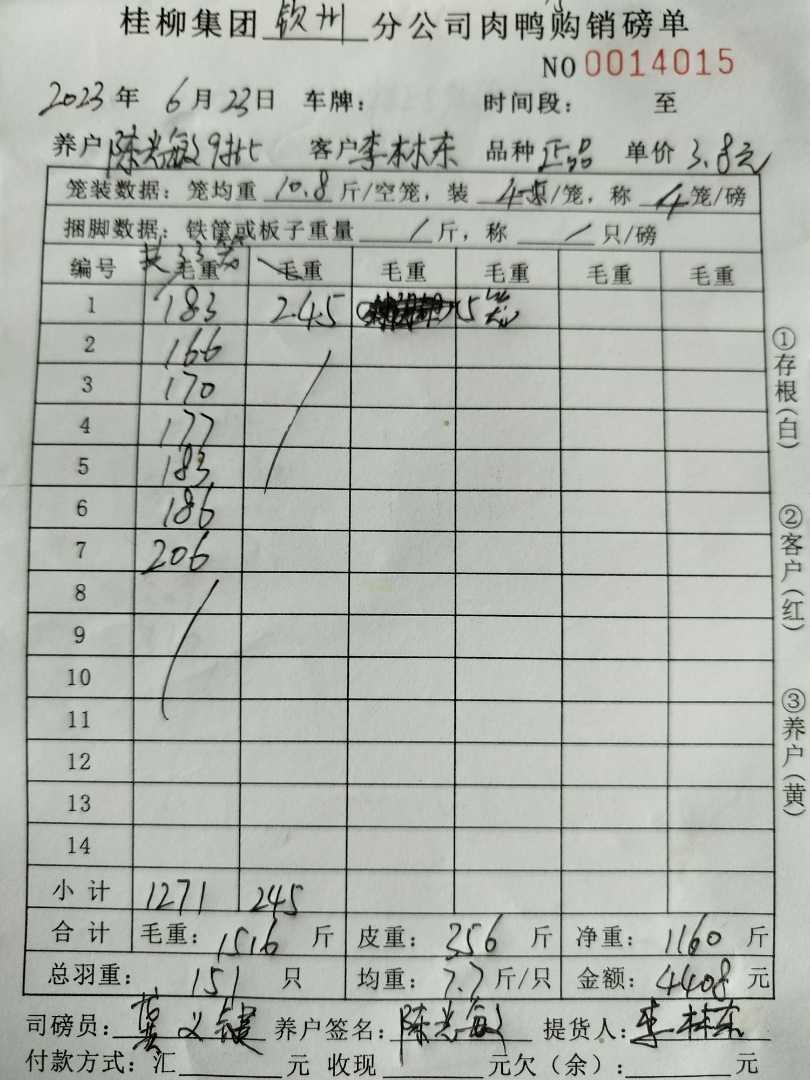 桂柳集团 钦州 分公司肉鸭购销磅单
NO 0014015
2023 年 6 月 23 日 车牌： 时间段： 至
养户 陈光敏 9批 客户 李林东 品种 正品 单价 3.8元
笼装数据：笼均重 10.8 斤/空笼，装 /笼，称 4 笼/磅
捆脚数据：铁筐或板子重量 / 斤，称 / 只/磅
共33笼
编号 毛重 毛重 毛重 毛重 毛重 毛重
1 183 245
2 166
3 170
4 177
5 183
6 186
7 206
8
9
10
11
12
13
14
小计 1271 245
合计 毛重： 1516 斤 皮重： 356 斤 净重： 1160 斤
总羽重： 151 只 均重： 7.7 斤/只 金额： 4408 元
司磅员： 养户签名： 陈光敏 提货人： 李林东
付款方式：汇 元 收现 元欠（余）： 元
①存根（白）
②客户（红）
③养户（黄）